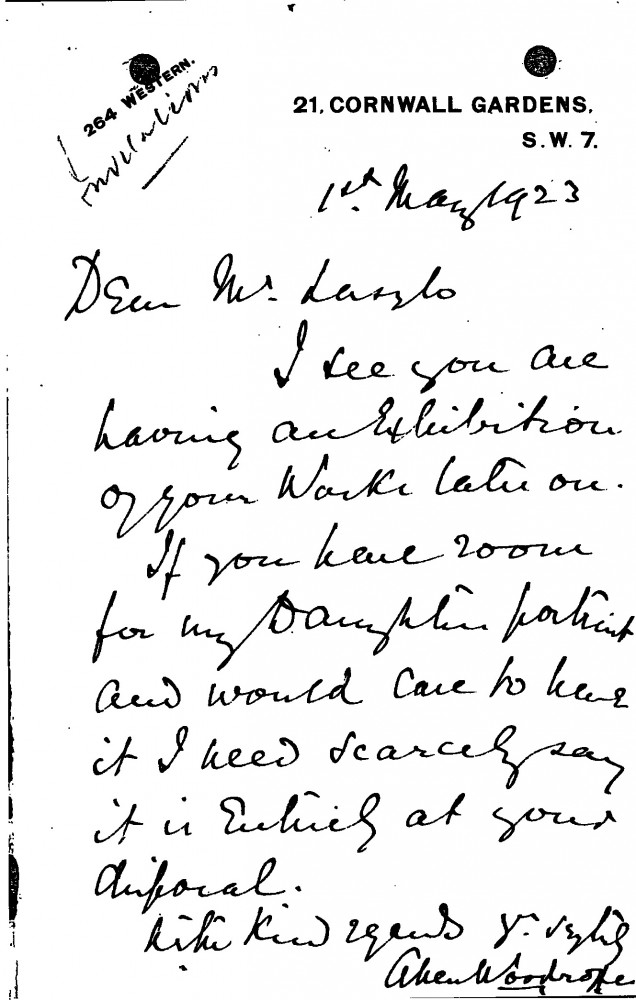 264 WESTERN.
Invitations
21, CORNWALL GARDENS,
S.W. 7.
1st. May 1923
Dear Mr. Laszlo
I see you are
having an Exhibition
of your Works later on.
If you have room
for my Daughters portrait
and would care to have
it I need scarcely say
it is Entirely at your
disposal.
With Kind regards Yr.
Woodrofe